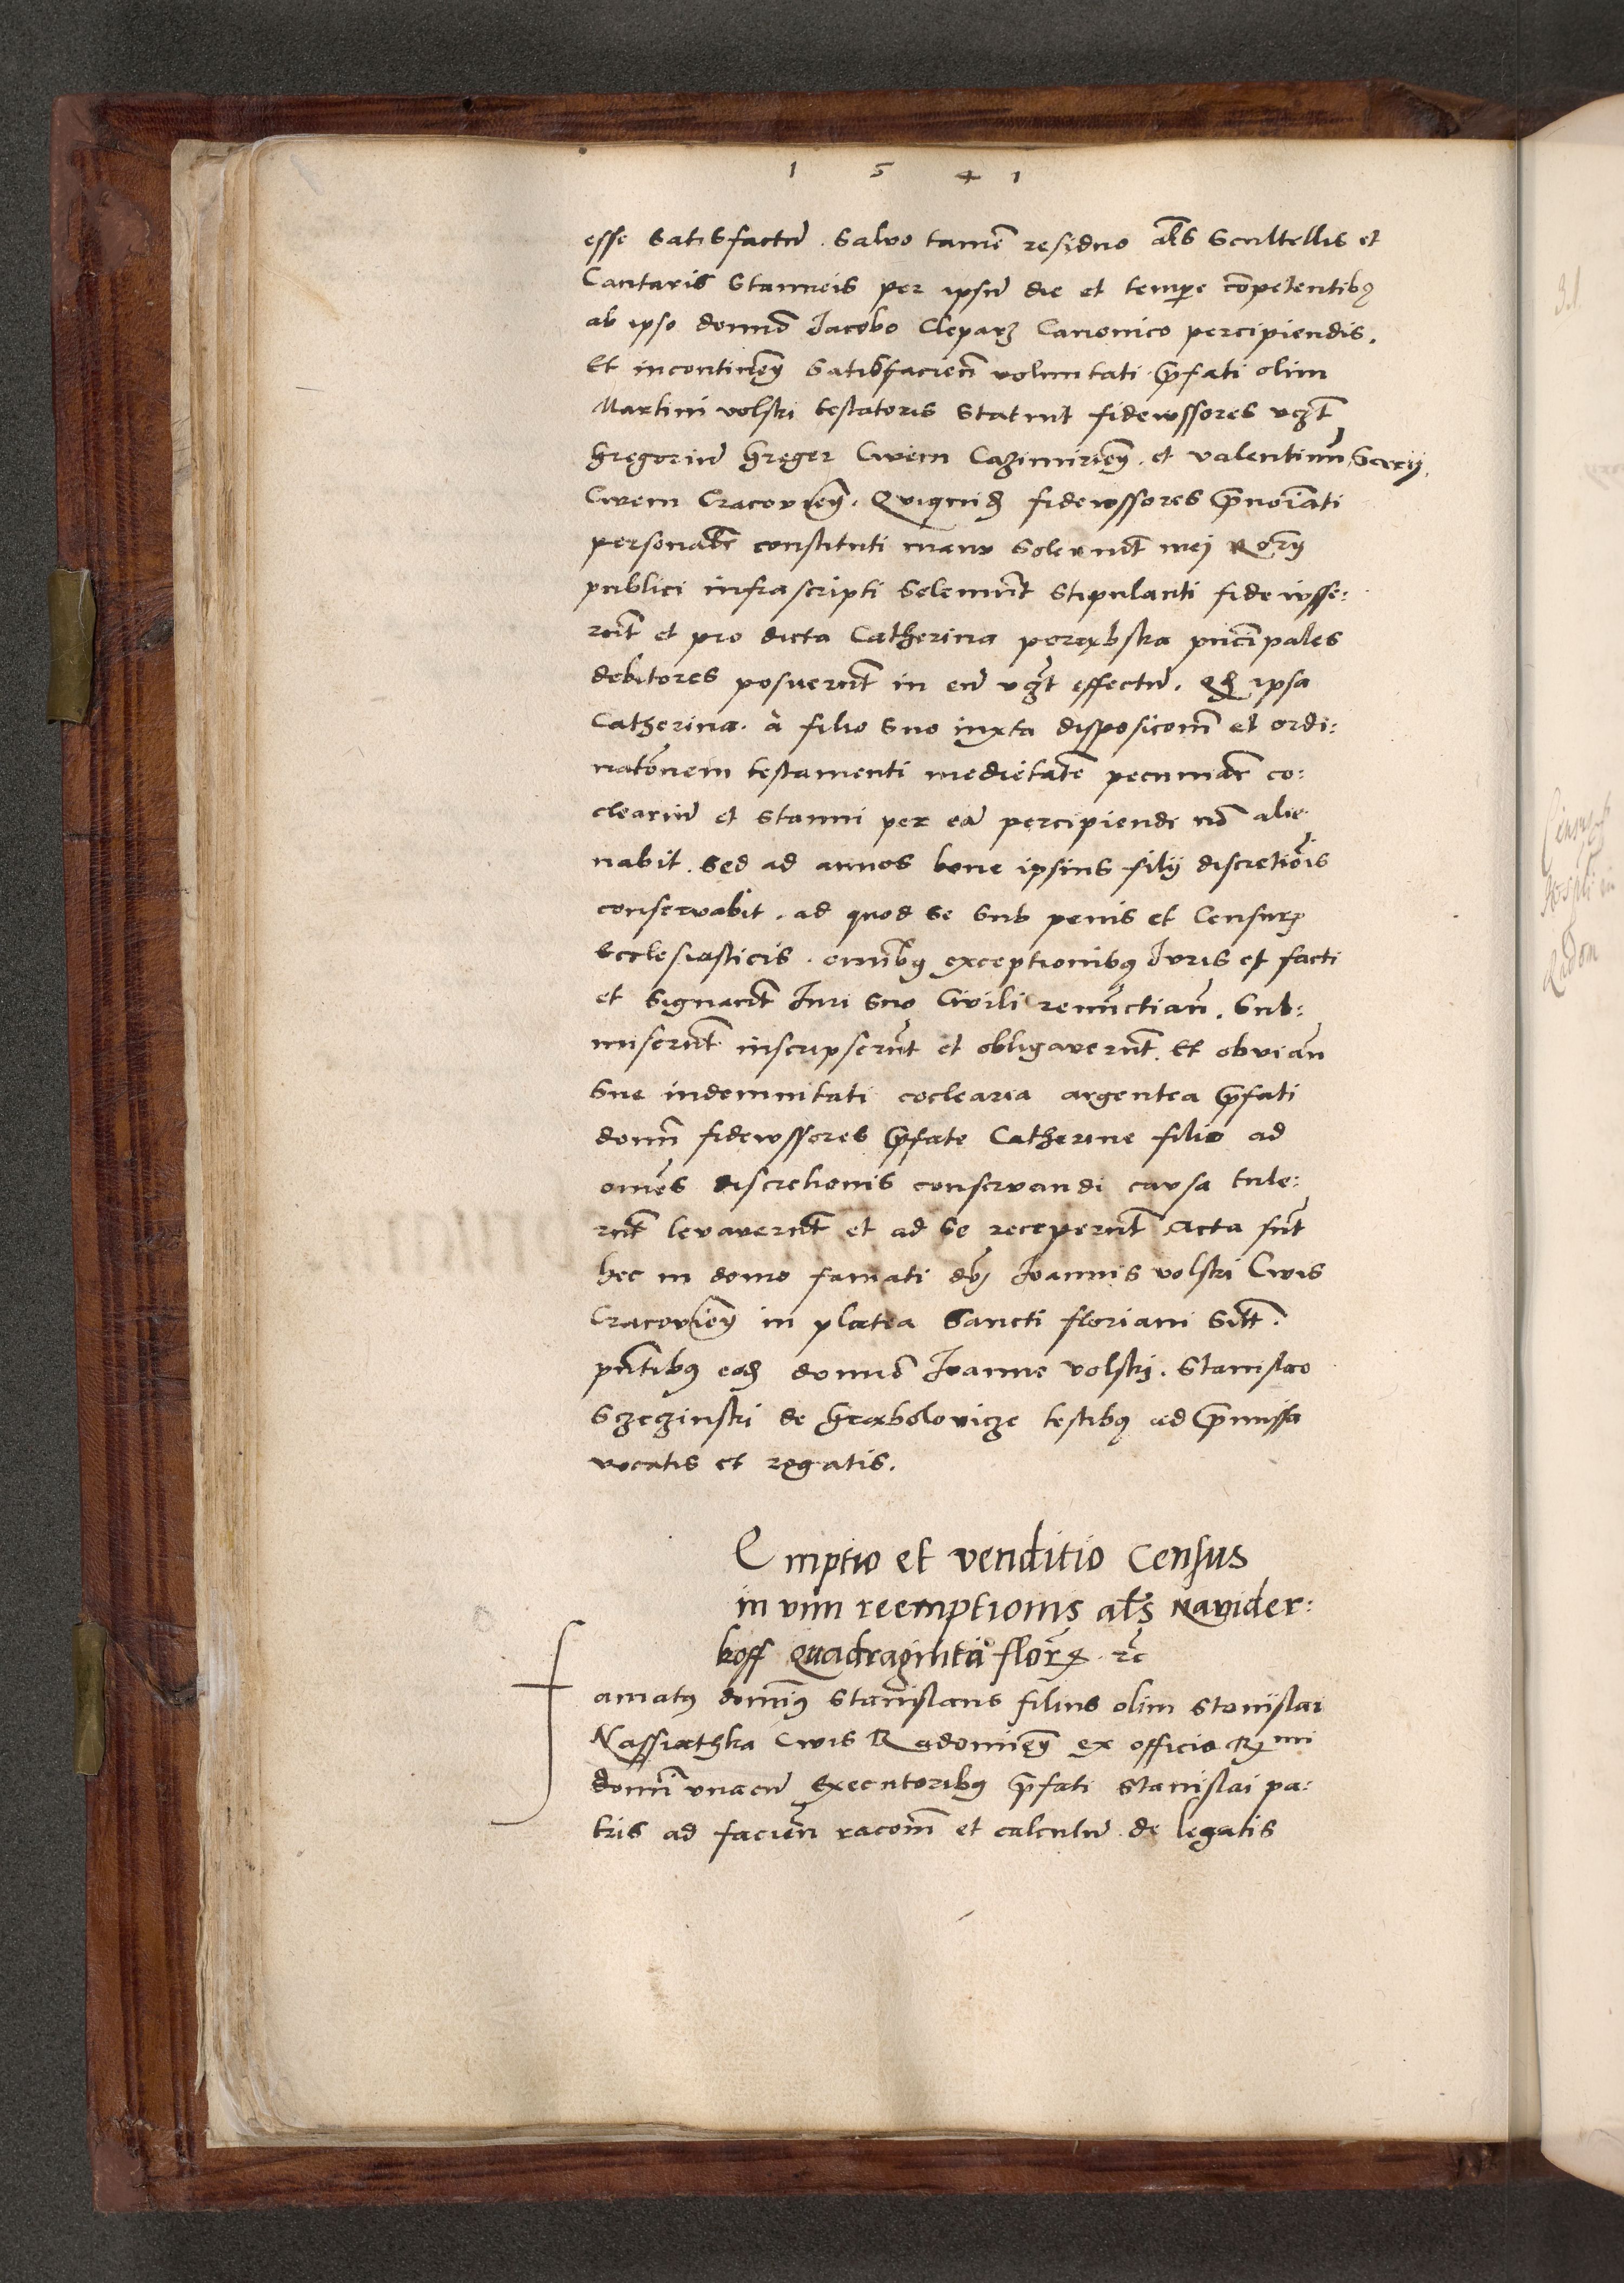 1 5 4 1
esse satisfactū. salvo tamē residuo al̄s scultellis et
Cantaris stanneis per ipsū die et tempe competentibꝫ
ab ipso domno Jacobo Clepaꝛꝫ Canonico percipiendis.
Et incontineñ satisfacieñ voluntati p̄fati olim
Martini volski testatoris statuit fideiussores vꝫt
Gregoriū Greger Civem Cazimirieñ. et valentinū
Civem Cracovieñ. Quiquidē fideiussores p̄noīati
personalr̄ constituti manu solennit mei Notarij
publici infrascripti solennit stipulanti fideiusse:
rūt et pro dicta Catherina porembska pn̄cipales
debitores posuerūt in eū vꝫt effectū. qđ ipsa
Catherina. a filio suo iuxta disposicōm et ordi:
natōnem testamenti medietatē pecuniar̄ co:
cleariū et stanni per eā percipiende nō alie
nabit. sed ad annos bone ipsius filij discretiōis
conservabit. ad quod se sub penis et Censurꝫ
ecclesiasticis. omnībꝫ exceptionibꝫ Juris et facti
et signarūt Juri suo Civili renūctiañ. Sub:
miserūt inscripserūt et obligaverūt. Et obviañ
sue indemnitati coclearia argentea p̄fati
domn̄ fideiussores p̄fate Catherine filio ad
annos discretionis conservandi causa tule:
rūt levaverūt et ad se receperūt Acta sūt
hec in domo famati dn̄i Joannis volski Civis
Cracovieñ in platea Sancti floriani sitt.
pn̄tibꝫ eodē domno Joanne volski. Stanislao
Sczeczinski de Grabolovicze testibꝫ ad p̄missa
vocatis et rogatis.
Emptio et venditio Census
in vim reemptionis al̄s Navider:
koff quadraginta flor̄ꝫ. ꝛc̄
famatꝫ domnꝫ Stanislaus filius olim Stanislai
Nassiathka Civis Radomieñ ex officio Rmi
domn̄i unacū executoribꝫ p̄fati Stanislai pa:
tris ad facieñ racōm et calculū de legatis